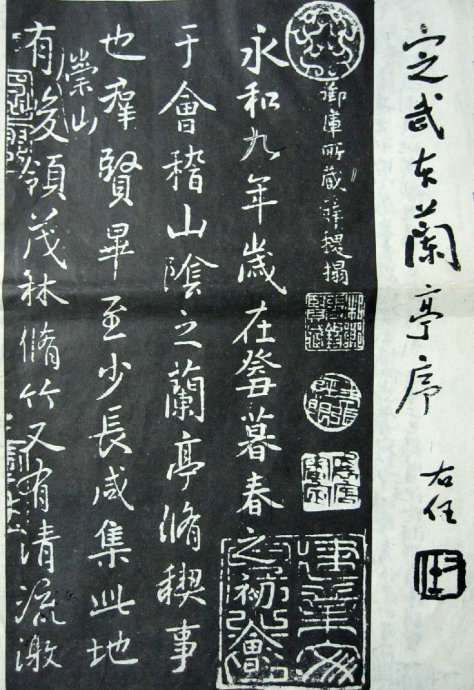 定武本蘭亭序
右任
御庫所藏薛稷搨
永和九年歲在癸丑暮春之初會
于會稽山陰之蘭亭脩禊事
也羣賢畢至少長咸集此地
崇山
有峻領茂林脩竹又有清流激